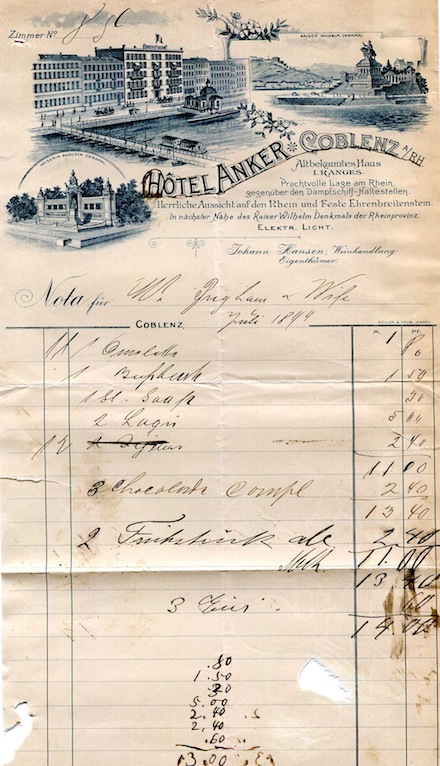 Zimmer No
KAISER WILHELM DENKMAL
KAISERIN AUGUSTA DENKMAL
HÔTEL ANKER * COBLENZ A/RH.
Altbekanntes Haus
I. RANGES.
Prachtvolle Lage am Rhein,
gegenüber den Dampfschiff-Haltestellen.
Herrliche Aussicht auf den Rhein und Feste Ehrenbreitenstein.
In nächster Nähe des Kaiser Wilhelm Denkmals der Rheinprovinz.
ELEKTR. LICHT.
Johann Hansen, Weinhandlung
Eigenthümer.
Nota für & Wife
COBLENZ, Juli 1899
M. PF.
11 1 Omelette 1 80
1 Beefsteak 1 50
1 Fl. 30
2 Logis 5 00
12 2 40
11 00
3 Chocolade Compl 2 40
13 40
2 Frühstück 2 40
11.00
13 40
3 Eier 60
14.00
.80
1.50
5.00
2.40
2.40
.60
13.00